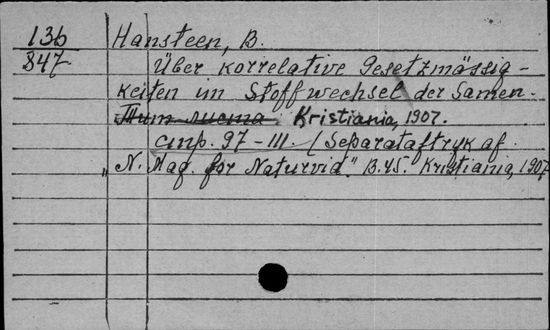 136 Hansteen, B.
847 Über korrelative Gesetzmässig-
keiten im Stoffwechsel der Samen.
Тит. листа Kristiania, 1907.
стр. 97-111. (Separataftryk af
„N. Mag. for Naturvid." B.45. Kristiania, 1907